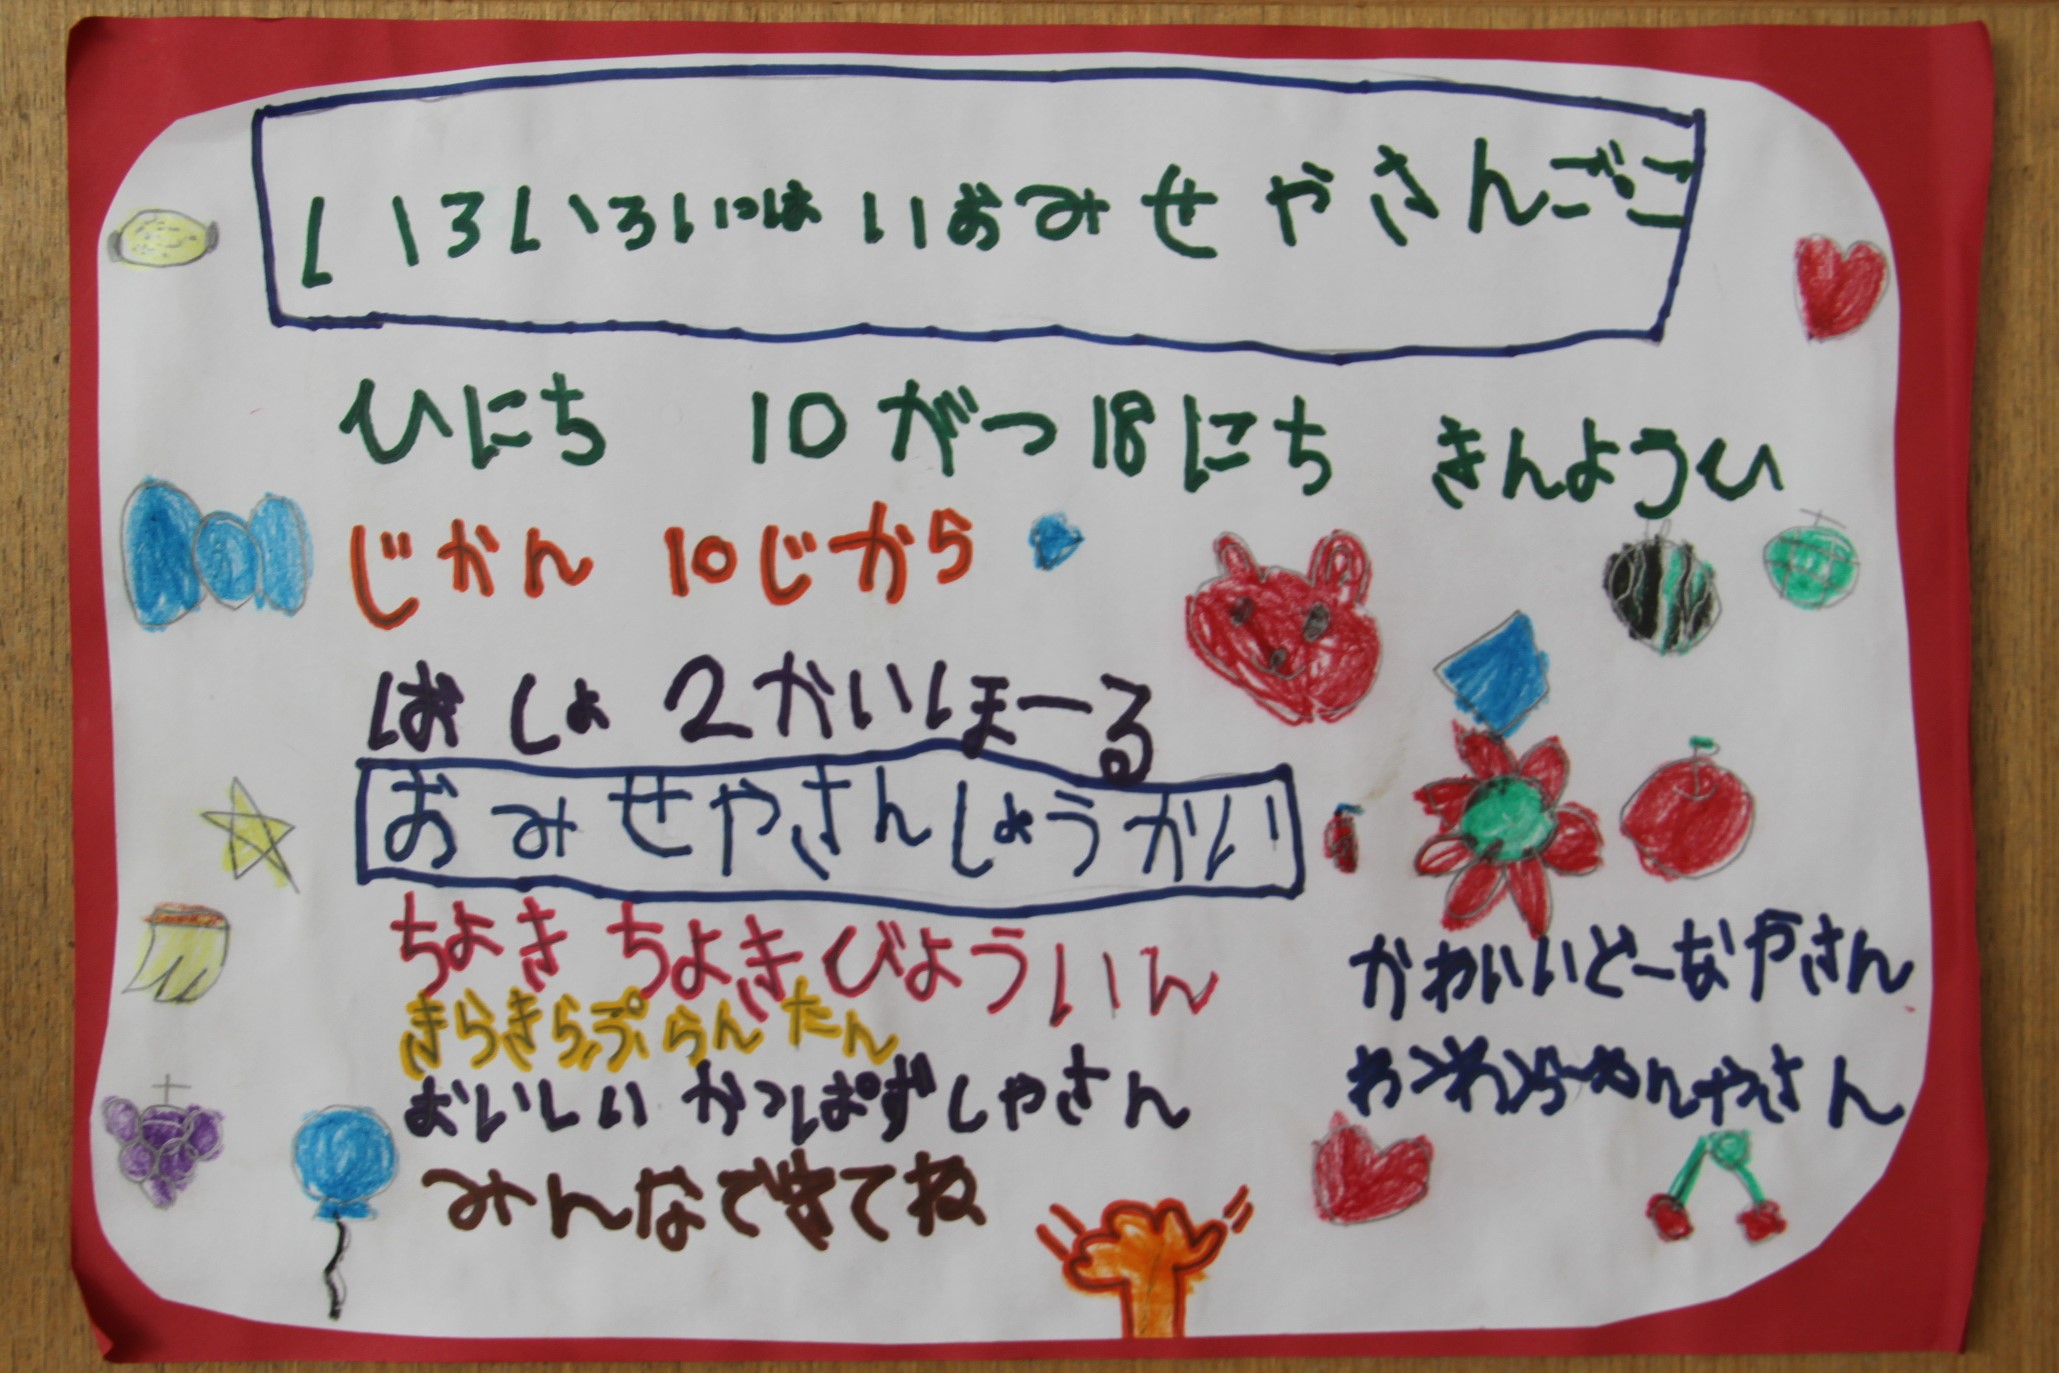 いろいろいっはいおみせやさんごこ
ひにち 10がつ18にち きんようひ
じかん 10じから
ばしょ 2かいほーる
おみせやさんしょうかい
ちょきちょきびよういん
きらきらぷらんたん
おいしいかっぱずしやさん
かわいいどーなやさん
わくわくらーめんやさん
みんなできてね